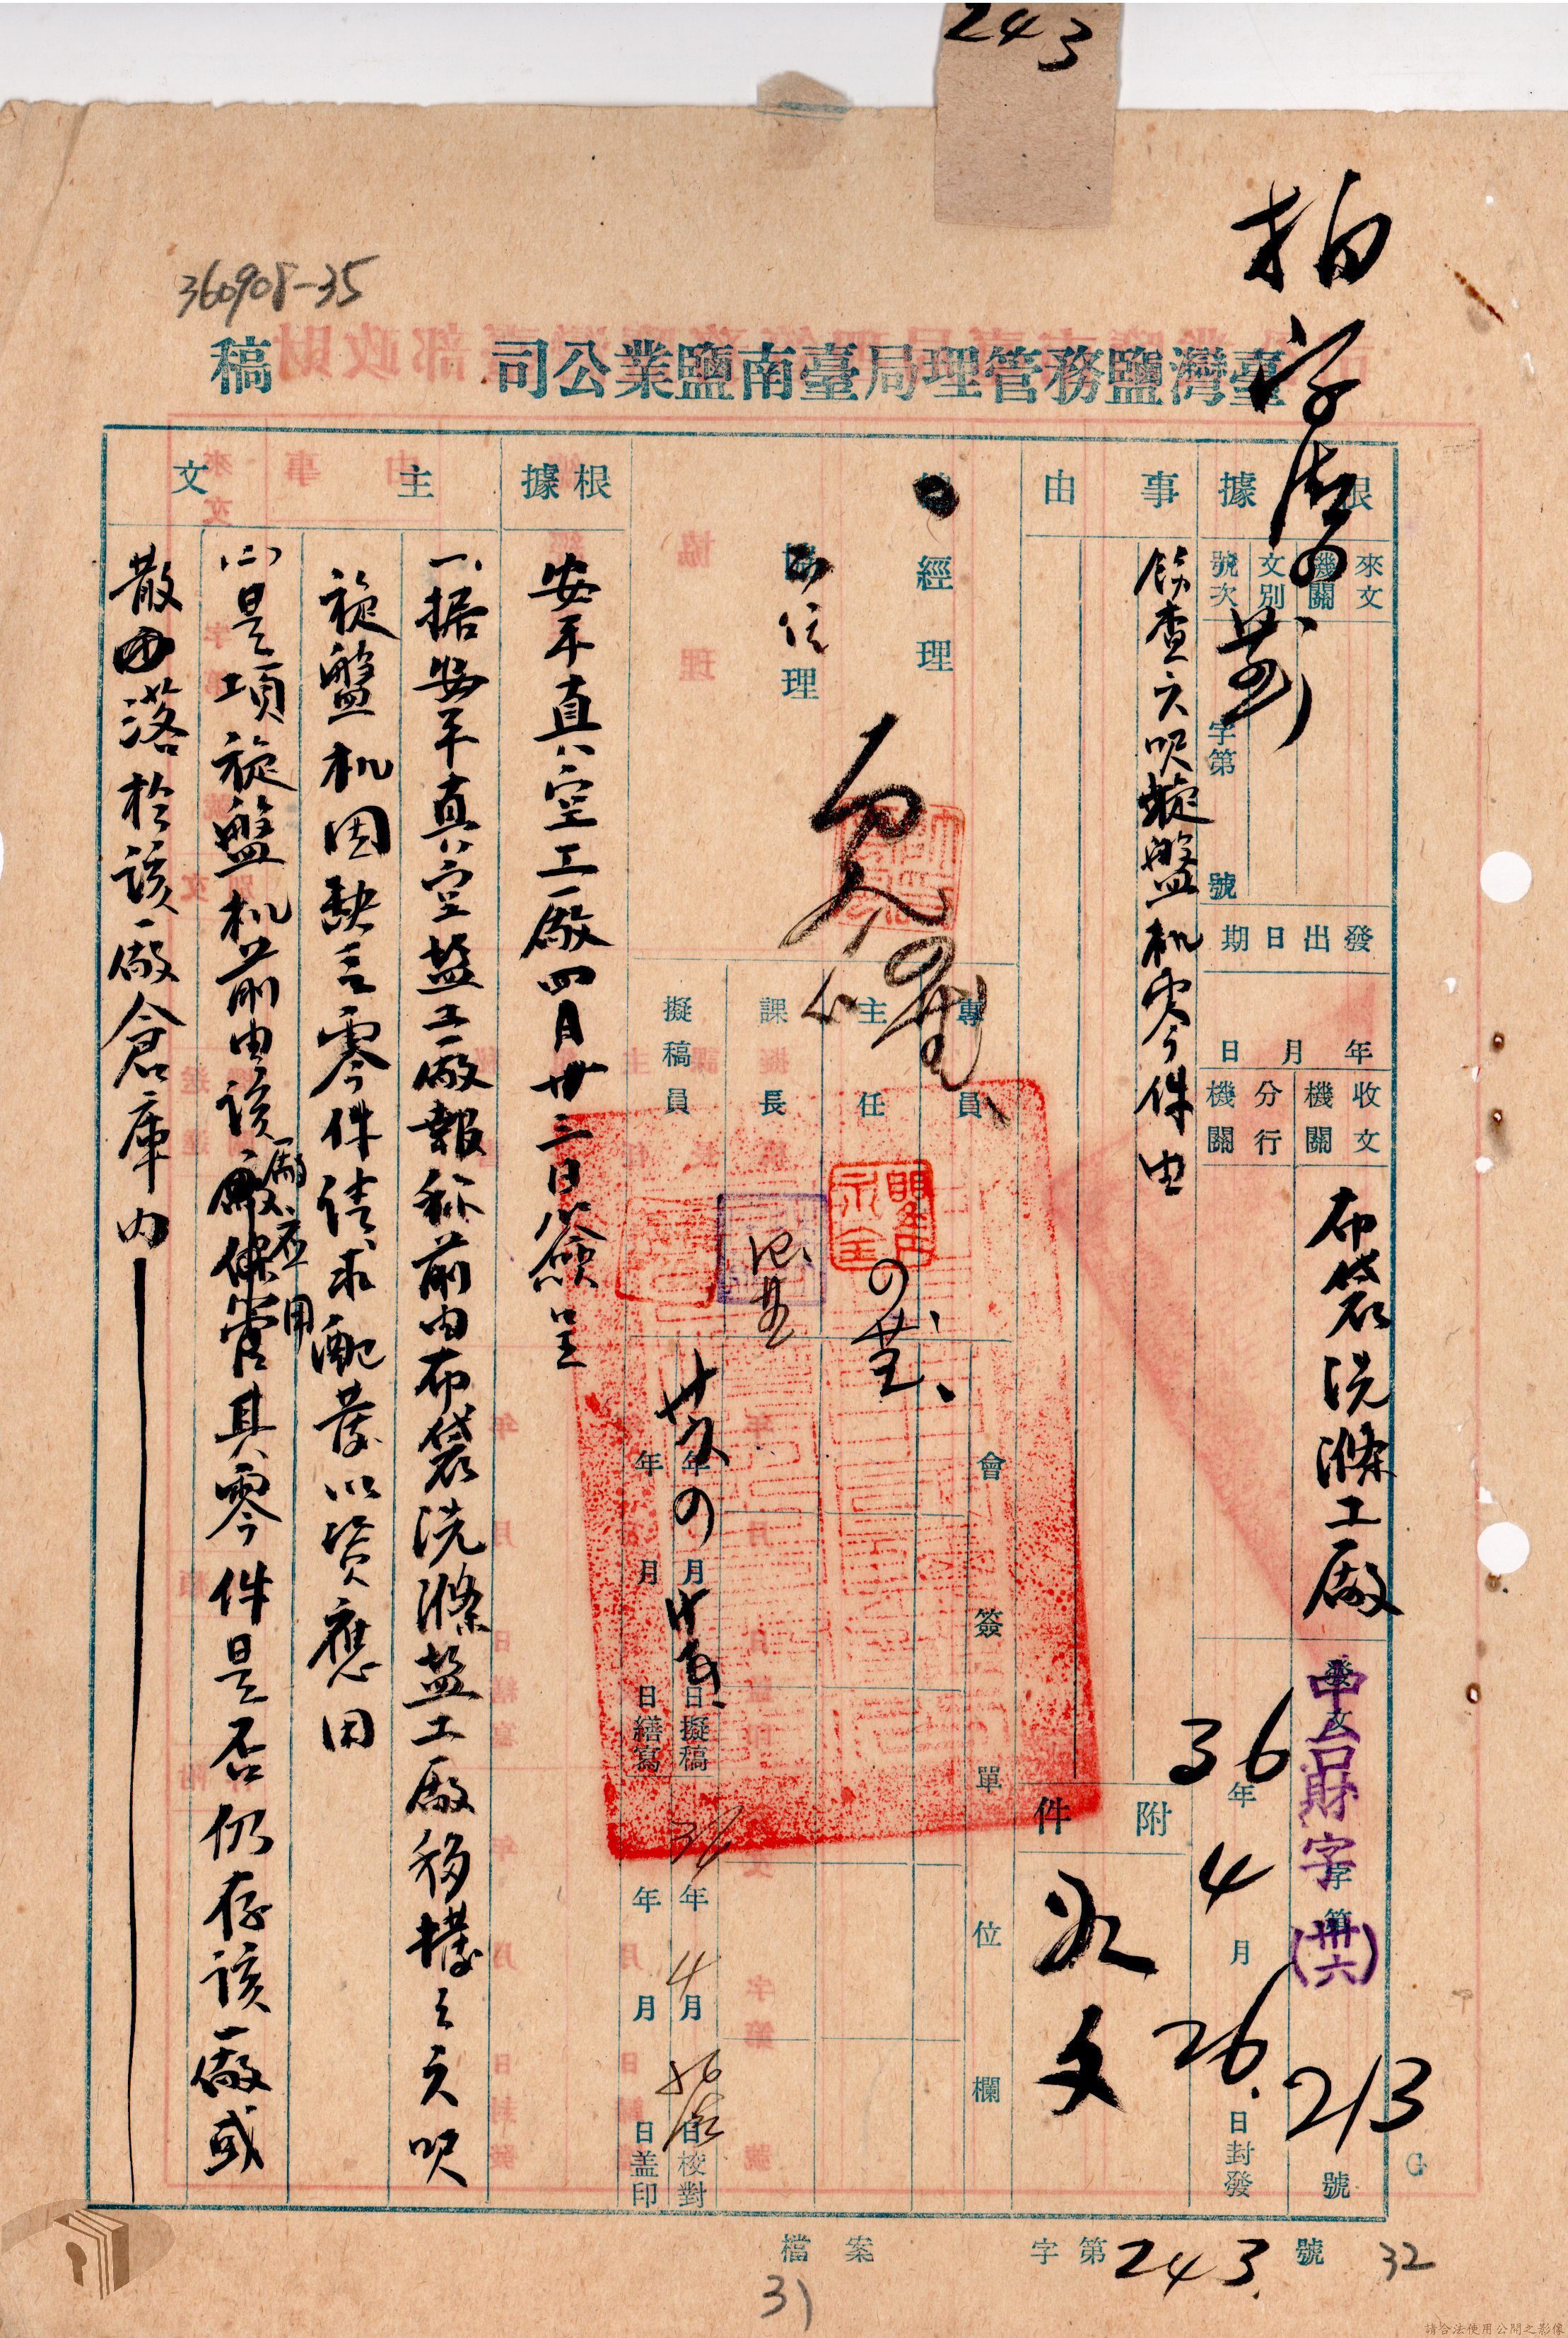 243
360908-35
臺灣鹽務管理局臺南鹽業公司 稿
根據
來文機關
文別
號次
字第 號
發出日期
年 月 日
收文機關 布袋洗滌工廠
分行機關
發文 中台財字第(卅六)213號
36年4月26日封發
事由
飭查六呎旋盤机零件由
附件
文
經理
協理
專員
主任
課長
擬稿員
會簽單位欄
年 月 日擬稿
年 月 日繕寫
36年4月26日校對
年 月 日蓋印
根據
安平真空工廠四月廿三日簽呈
主文
一、据安平真空盐工廠報称前由布袋洗滌盐工廠移撥之六呎
旋盤机因缺乏零件请求配發以资應用
(二)是項旋盤机前由该廠应用其零件是否仍存该廠或
散落於该廠倉庫内
檔案 字第243號
32
31
G
請合法使用公開之影像